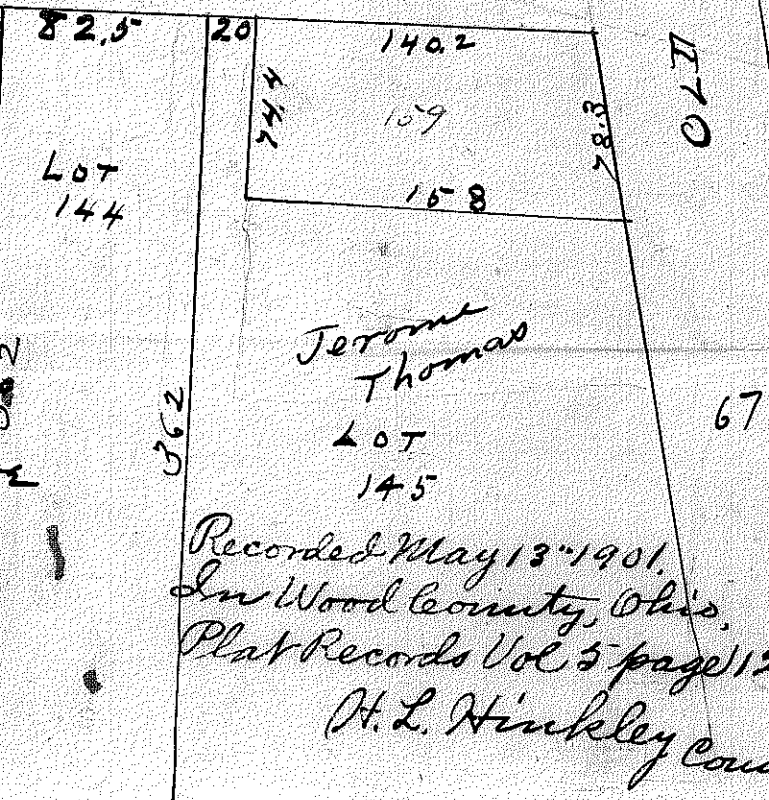 82.5
20
140.2
74.4
159
78.3
158
LOT
144
362
Jerome
Thomas
LOT
145
67
Recorded May 13" 1901.
In Wood County, Ohio,
Plat Records Vol 5 page 12
H. L. Hinkley Coun